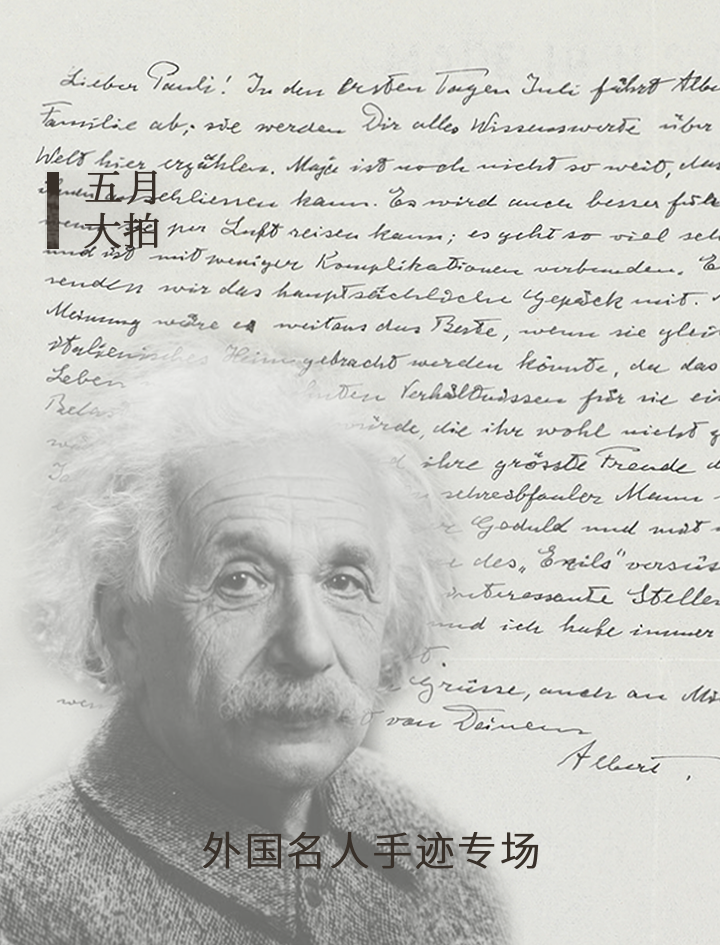 Lieber Pauli! In den ersten Tagen Juli führt Albe
Familie ab; sie werden Dir alles Wissenswerte über
Welt hier erzählen. Maja ist noch nicht so weit, das
五月
schliessen kann. Es wird auch besser
大拍
per Luft reisen kann; es geht so viel
und ist mit weniger Komplikationen verbunden. E
senden wir das hauptsächliche Gepäck mit.
Meinung wäre es weitaus das Beste, wenn sie glei
italienisches Heim gebracht werden könnte, da das
Leben Verhältnissen für sie ei
würde, die ihr wohl nicht g
ihre grösste Freude d
schreibfauler Mann
Geduld und mit
des „Exils" versüs
interessante Stellen
und ich habe immer
Grüsse, auch an
von Deinem
Albert.
外国名人手迹专场